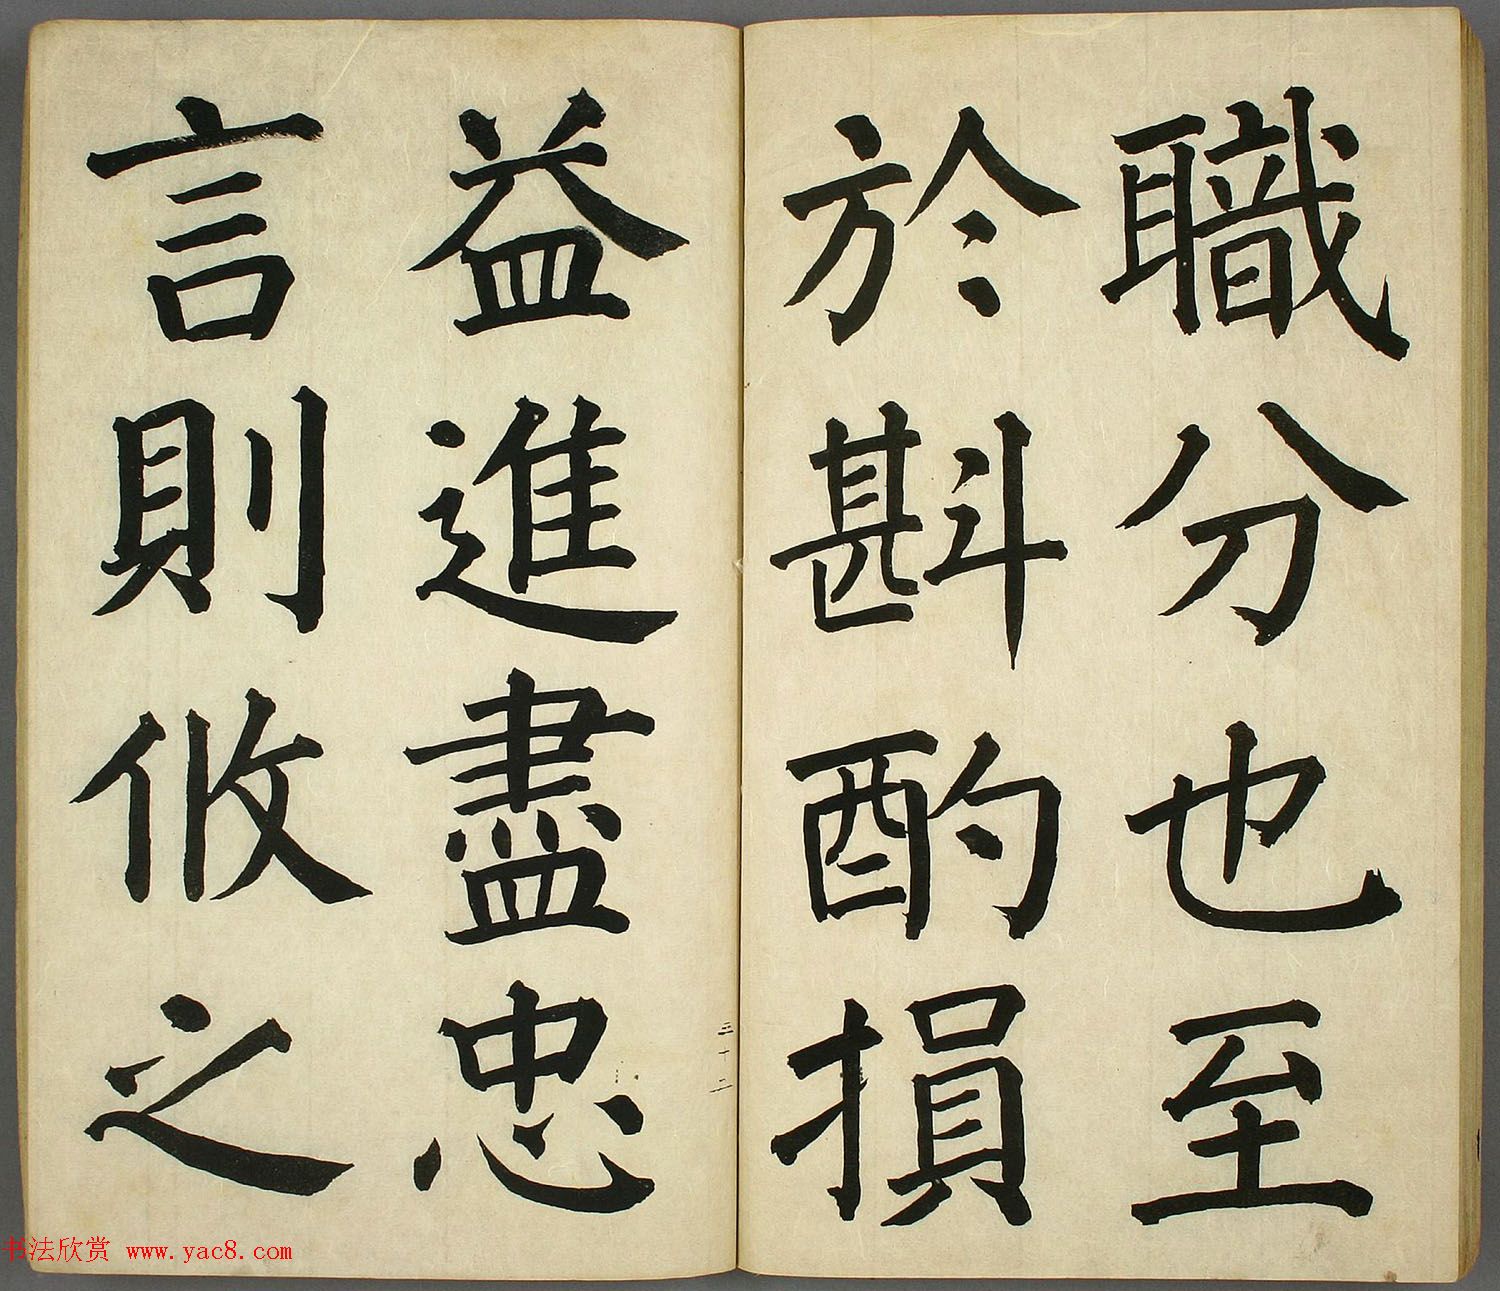 職分也至
於斟酌損
益進盡忠
言則攸之
三十二
书法欣赏 www.yac8.com